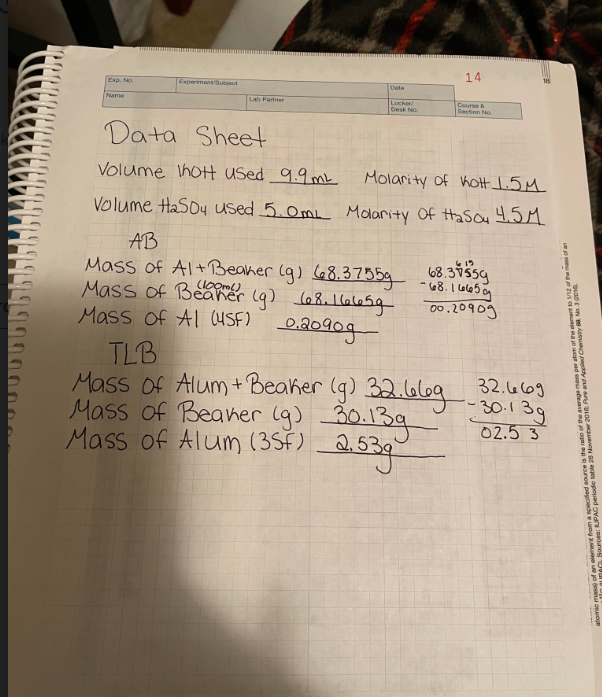 14
Exp. No. Experiment/Subject Date
Name Lab Partner Locker/Desk No. Course & Section No.
Data Sheet
Volume KOH used 9.9mL Molarity of KOH 1.5M
Volume H2SO4 used 5.0mL Molarity Of H2SO4 4.5M
AB
Mass of Al+Beaker (g) 68.3755g
Mass of Beaker (100mL) (g) 68.1665g
Mass of Al (4SF) 0.2090g
6 15
68.3755g
-68.1665g
00.2090g
TLB
Mass of Alum+Beaker (g) 32.66g
Mass of Beaker (g) 30.13g
Mass of Alum (3SF) 2.53g
32.66g
-30.13g
02.53
atomic mass) of an element from a specified source is the ratio of the average mass per atom of the element to 1/12 of the mass of an
IUPAC). Sources: IUPAC periodic table 28 November 2016; Pure and Applied Chemistry 88, No. 3 (2016).